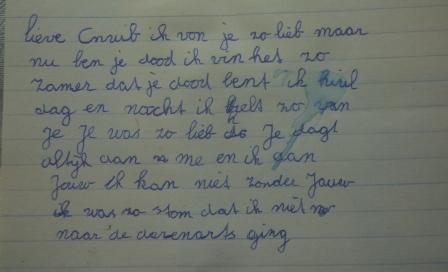 lieve Cnuib ik von je zo lieb maar
nu ben je dood ik vin het zo
zamer dat je dood bent ik huil
dag en nacht ik hielt zo van
je Je was zo lieb Je dagt
altijt aan me en ik aan
Jouw Ik kan niet zonder Jouw
ik was zo stom dat ik niet
naar de derenarts ging